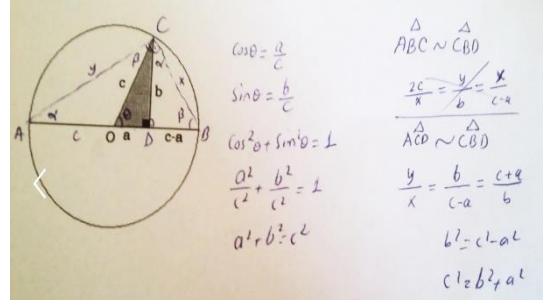 C
y
β
α
c
x
b
α
θ
β
A
c
O
a
D
c-a
B
cosθ = a/c
Sinθ = b/c
Cos²θ + Sin²θ = 1
a²/c² + b²/c² = 1
a² + b² = c²
ABC ~ CBD
2c/x = y/b = x/c-a
ACD ~ CBD
y/x = b/c-a = c+a/b
b² = c² - a²
c² = b² + a²